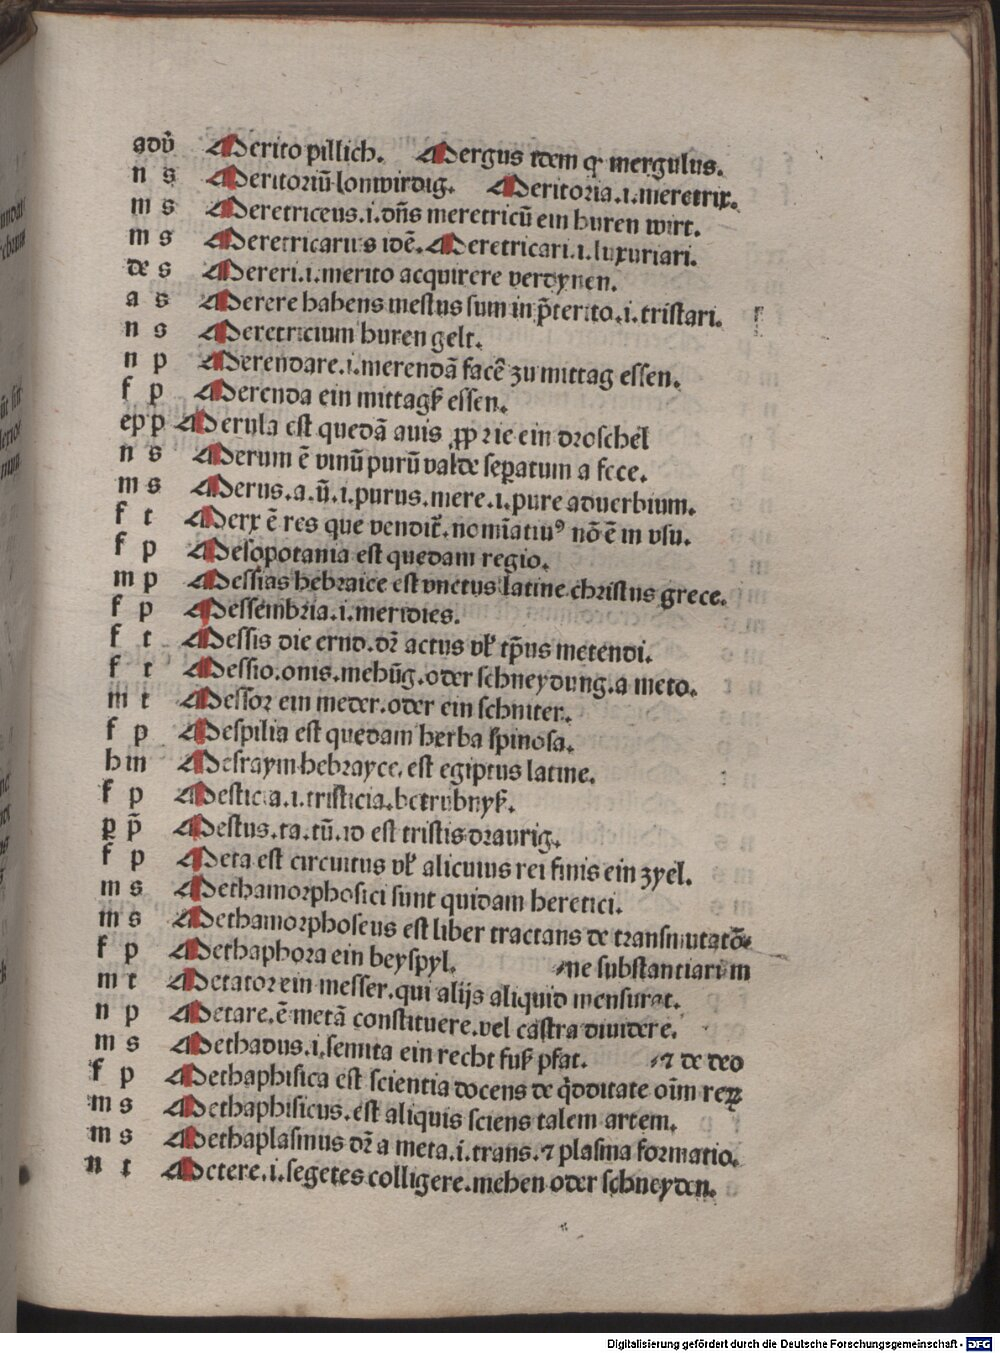 adv̄ Merito pillich. Mergus idem qđ mergulus.
n s Meritoriū lonwirdig. Meritoria.i.meretrix.
m s Meretriceus.i.dñs meretricū ein huren wirt.
m s Meretricarius idē. Meretricari.i.luxuriari.
de s Mereri.i.merito acquirere verdynen.
a s Merere habens mestus sum in p̄terito.i.tristari.
n s Meretricium huren gelt.
n p Merendare.i.merendā facē zu mittag essen.
f p Merenda ein mittagß essen.
ep p Merula est quedā auis ꝓprie ein droschel
n s Merum ē vinū purū valde seꝑatum a fece.
m s Merus.a.ū.i.purus.mere.i.pure aduerbium.
f t Merx ē res que vendit᷑.nomīatiuꝰ nō ē in vsu.
f p Mesopotania est quedam regio.
m p Messias hebraice est vnctus latine christus grece.
f p Messembria.i.meridies.
f t Messis die ernd.dr̄ actus vł tp̄us metendi.
f t Messio.onis.mehūg.oder schneydung.a meto.
m t Messor ein meder.oder ein schniter.
f p Mespilia est quedam herba spinosa.
h m Mesraym hebrayce.est egiptus latine.
f p Mesticia.i.tristicia.betrubnyß.
ꝑ p̄ Mestus.ta.tū.id est tristis draurig.
f p Meta est circuitus vł alicuius rei finis ein zyel.
m s Methamorphosici sunt quidam heretici.
m s Methamorphoseus est liber tractans de transmutatō⸗
f p Methaphora ein beyspyl. ne substantiarum
m t Metator ein messer.qui alijs aliquid mensurat.
n p Metare.ē metā constituere.vel castra diuidere.
m s Methadus.i.semita ein recht fuß pfat. ⁊ de deo
f p Methaphisica est scientia docens de qđditate oīm reꝝ
m s Methaphisicus.est aliquis sciens talem artem.
m s Methaplasmus dr̄ a meta.i.trans.⁊ plasma formatio.
n t Metere.i.segetes colligere.mehen oder schneyden.
Digitalisierung gefördert durch die Deutsche Forschungsgemeinschaft - DFG